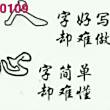 0109
人 字好写
却难做
心 字简单
却难懂